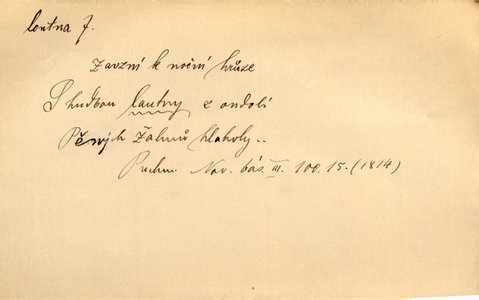 loutna f.
Zavzní k noční hrůze
S hudbou lautny z ondolí
Pěných Žalmů hlaholy..
Puchm. Nov. bás. III. 100. 15. (1814)